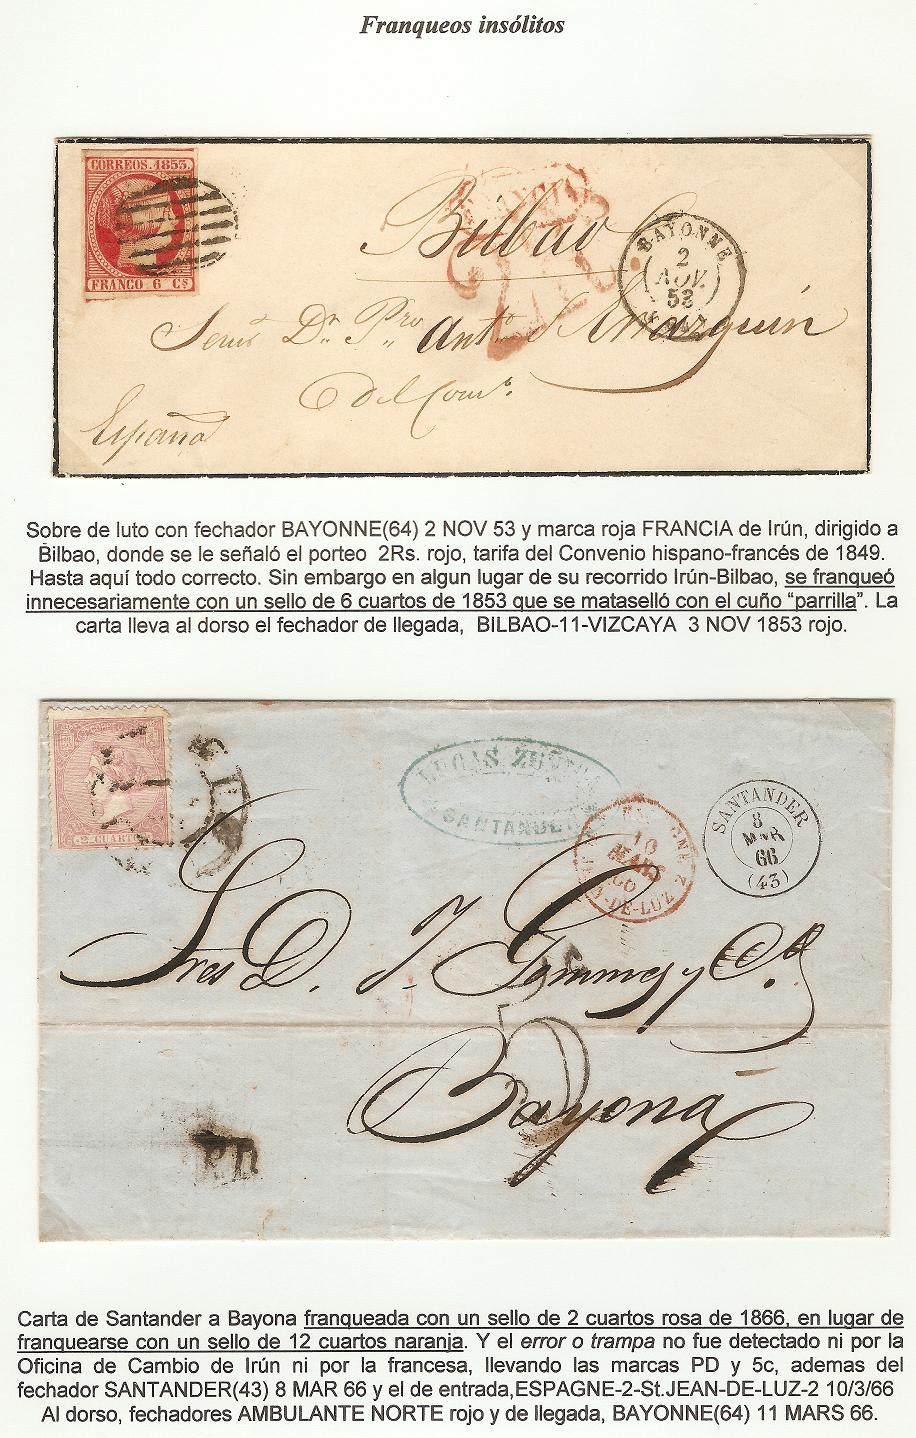 Franqueos insólitos
CORREOS. 1853.
FRANCO 6 CS
Bilbao
BAYONNE
2
NOV.
53
España
Sobre de luto con fechador BAYONNE(64) 2 NOV 53 y marca roja FRANCIA de Irún, dirigido a
Bilbao, donde se le señaló el porteo 2Rs. rojo, tarifa del Convenio hispano-francés de 1849.
Hasta aquí todo correcto. Sin embargo en algun lugar de su recorrido Irún-Bilbao, se franqueó
innecesariamente con un sello de 6 cuartos de 1853 que se mataselló con el cuño “parrilla”. La
carta lleva al dorso el fechador de llegada, BILBAO-11-VIZCAYA 3 NOV 1853 rojo.
2 CUARTOS
LUCAS
SANTANDER
10
MARS
DE-LUZ 2
SANTANDER
8
MAR
66
(43)
Sres D. J. Gommes y Cª
Bayona
P.D
Carta de Santander a Bayona franqueada con un sello de 2 cuartos rosa de 1866, en lugar de
franquearse con un sello de 12 cuartos naranja. Y el error o trampa no fue detectado ni por la
Oficina de Cambio de Irún ni por la francesa, llevando las marcas PD y 5c, ademas del
fechador SANTANDER(43) 8 MAR 66 y el de entrada,ESPAGNE-2-St.JEAN-DE-LUZ-2 10/3/66
Al dorso, fechadores AMBULANTE NORTE rojo y de llegada, BAYONNE(64) 11 MARS 66.